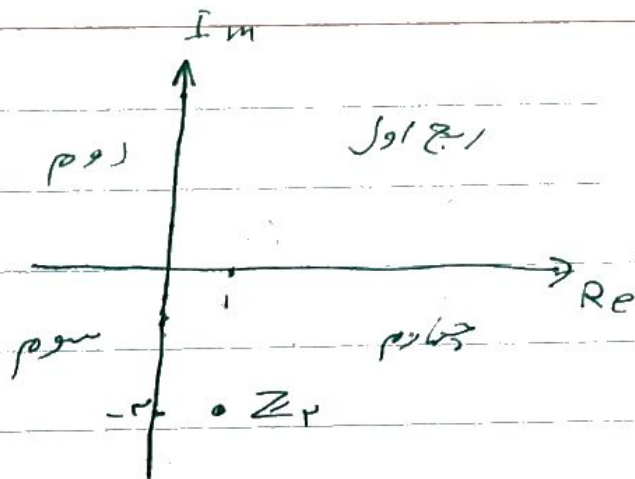 Im
دوم ربع اول
Re
۱
سوم چهارم
-۲ Z۲